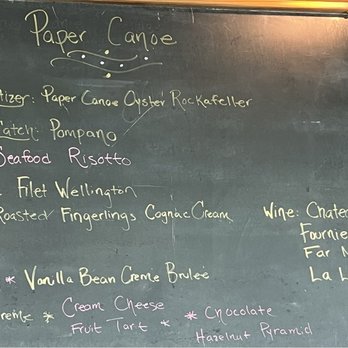 Paper Canoe
tizer: Paper Canoe Oyster Rockafeller
Catch: Pompano
Seafood Risotto
Filet Wellington
Roasted Fingerlings Cognac Cream
Wine: Chate
Fournie
Far N
La L
* Vanilla Bean Creme Brulee
reme * Cream Cheese Fruit Tart * * Chocolate Hazelnut Pyramid